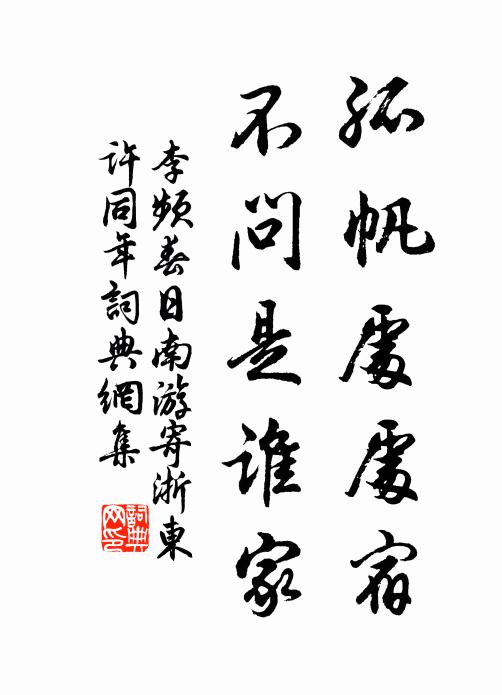 孤帆處處宿
不問是誰家
李頻春日南游寄浙東
許同年詞典網集
詞典网印